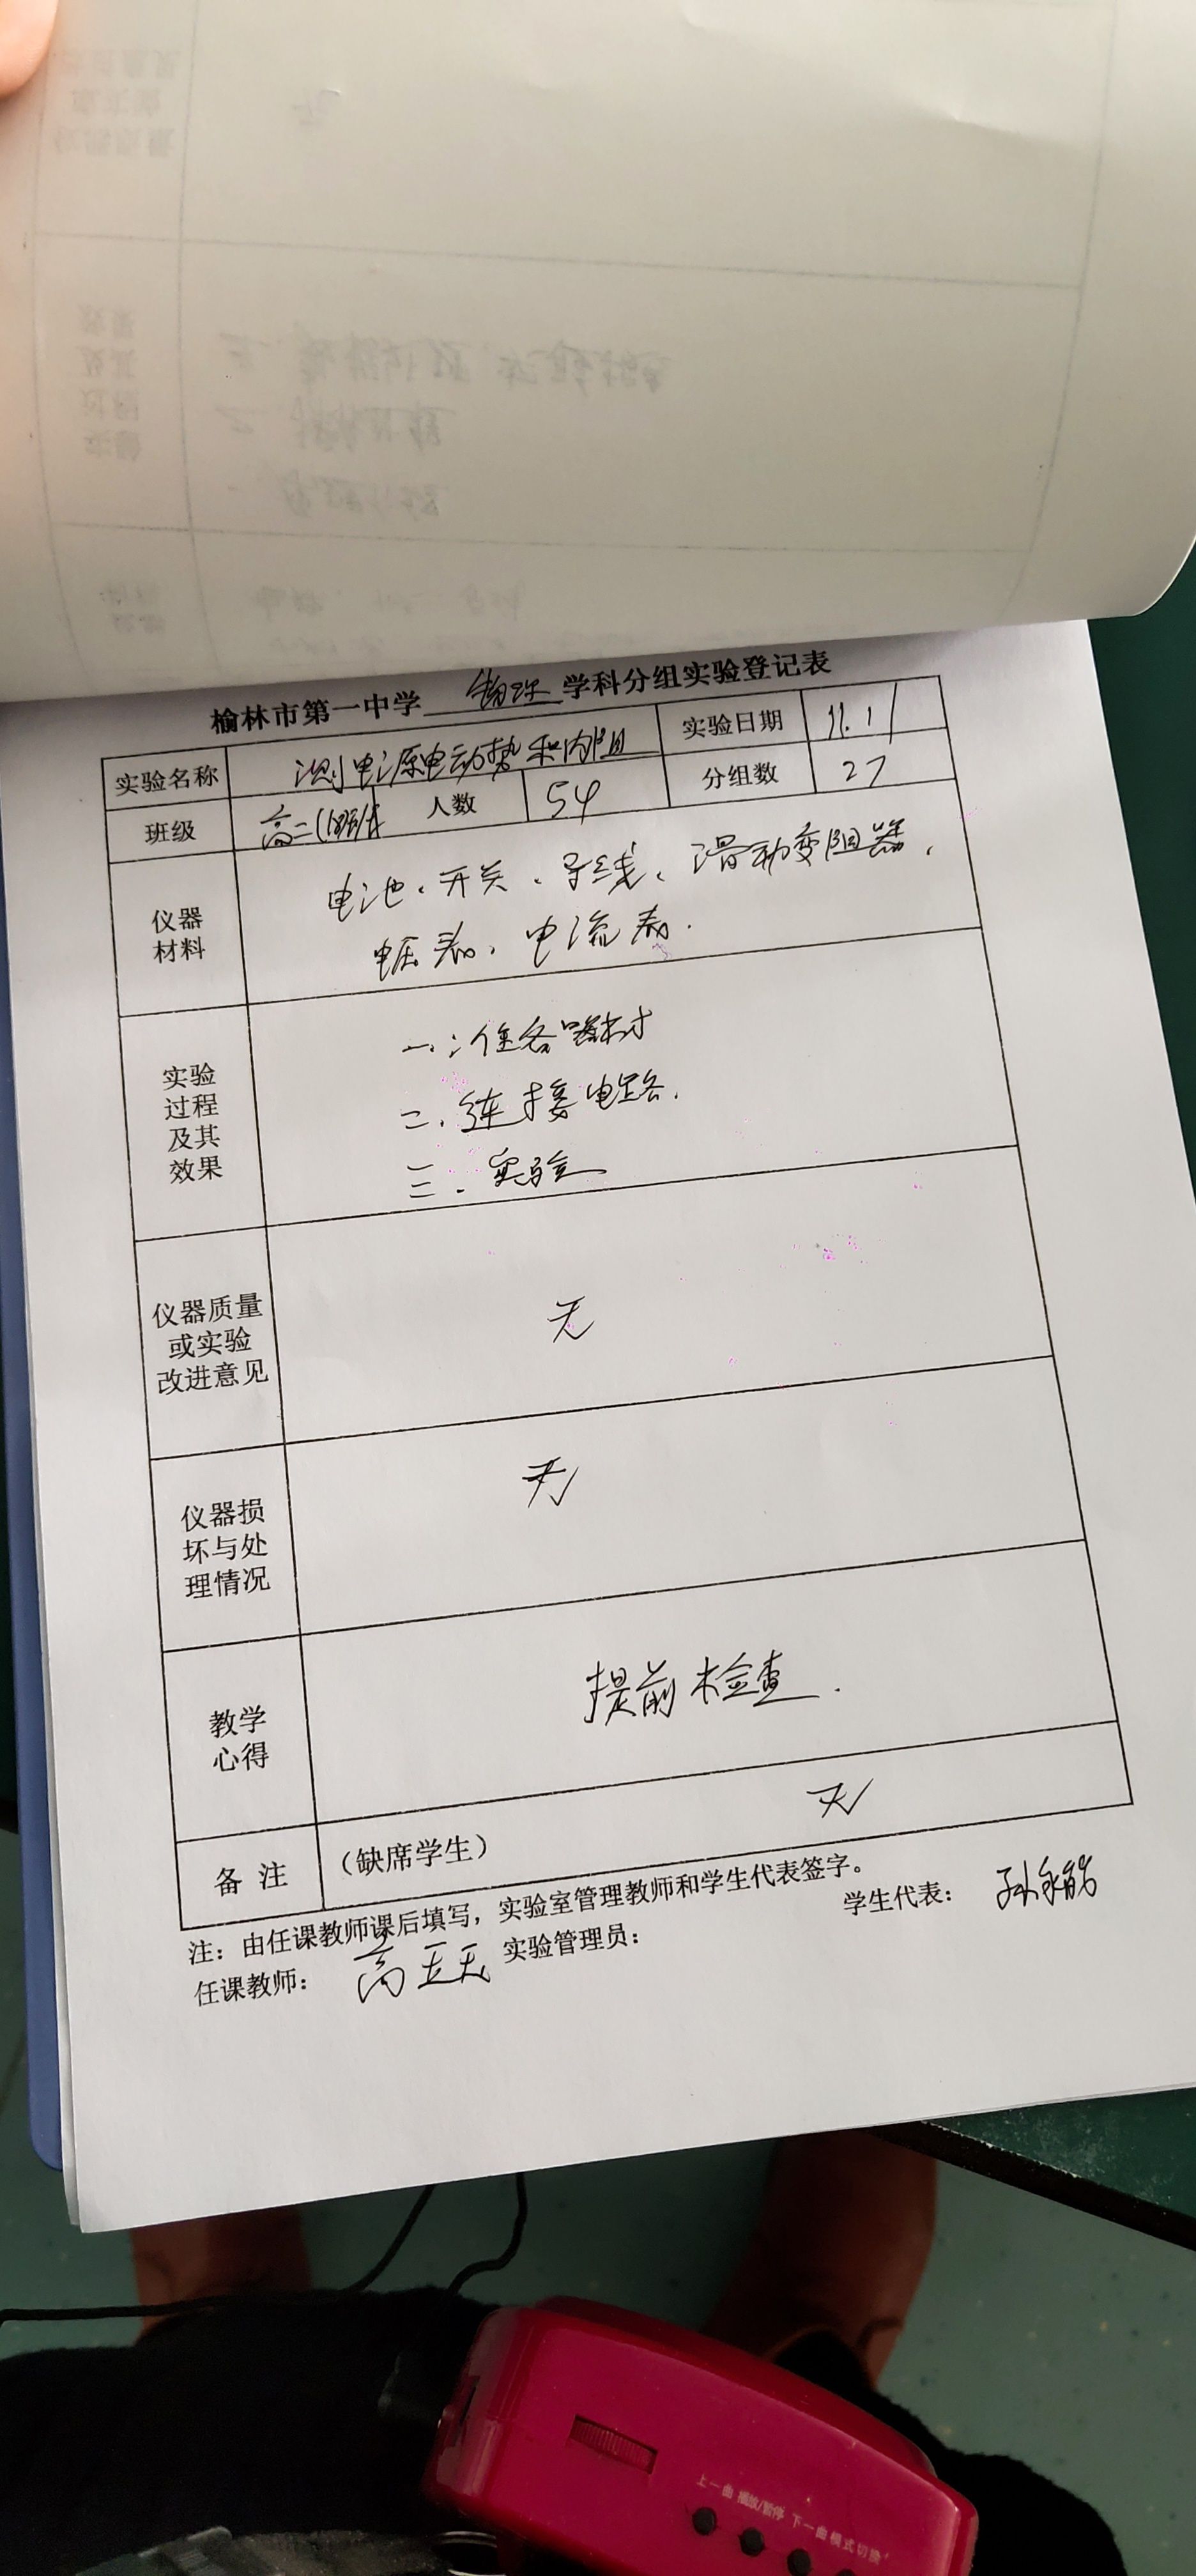 榆林市第一中学 物理 学科分组实验登记表
实验名称 测电源电动势和内阻 实验日期 11.1
班级 高二 人数 54 分组数 27
仪器材料 电池、开关、导线、滑动变阻器、
电压表、电流表.
实验过程及其效果
一、 器材
二、连接电路.
三、实验
仪器质量或实验改进意见 无
仪器损坏与处理情况 无
教学心得 提前检查.
备注 (缺席学生) 无
注：由任课教师课后填写，实验室管理教师和学生代表签字。
任课教师： 高 实验管理员： 学生代表： 孙
上一曲 播放/暂停 下一曲 模式切换